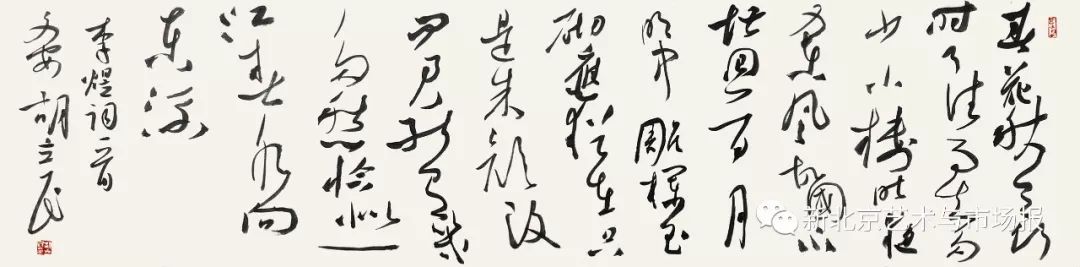 春花秋月何
時了往事知多
少小樓昨夜
又東風故國不
堪回首月
明中雕欄玉
砌應猶在只
是朱顏改
問君能有幾
多愁恰似一
江春水向
東流
李煜詞一首
胡立民
新北京艺术与市场报